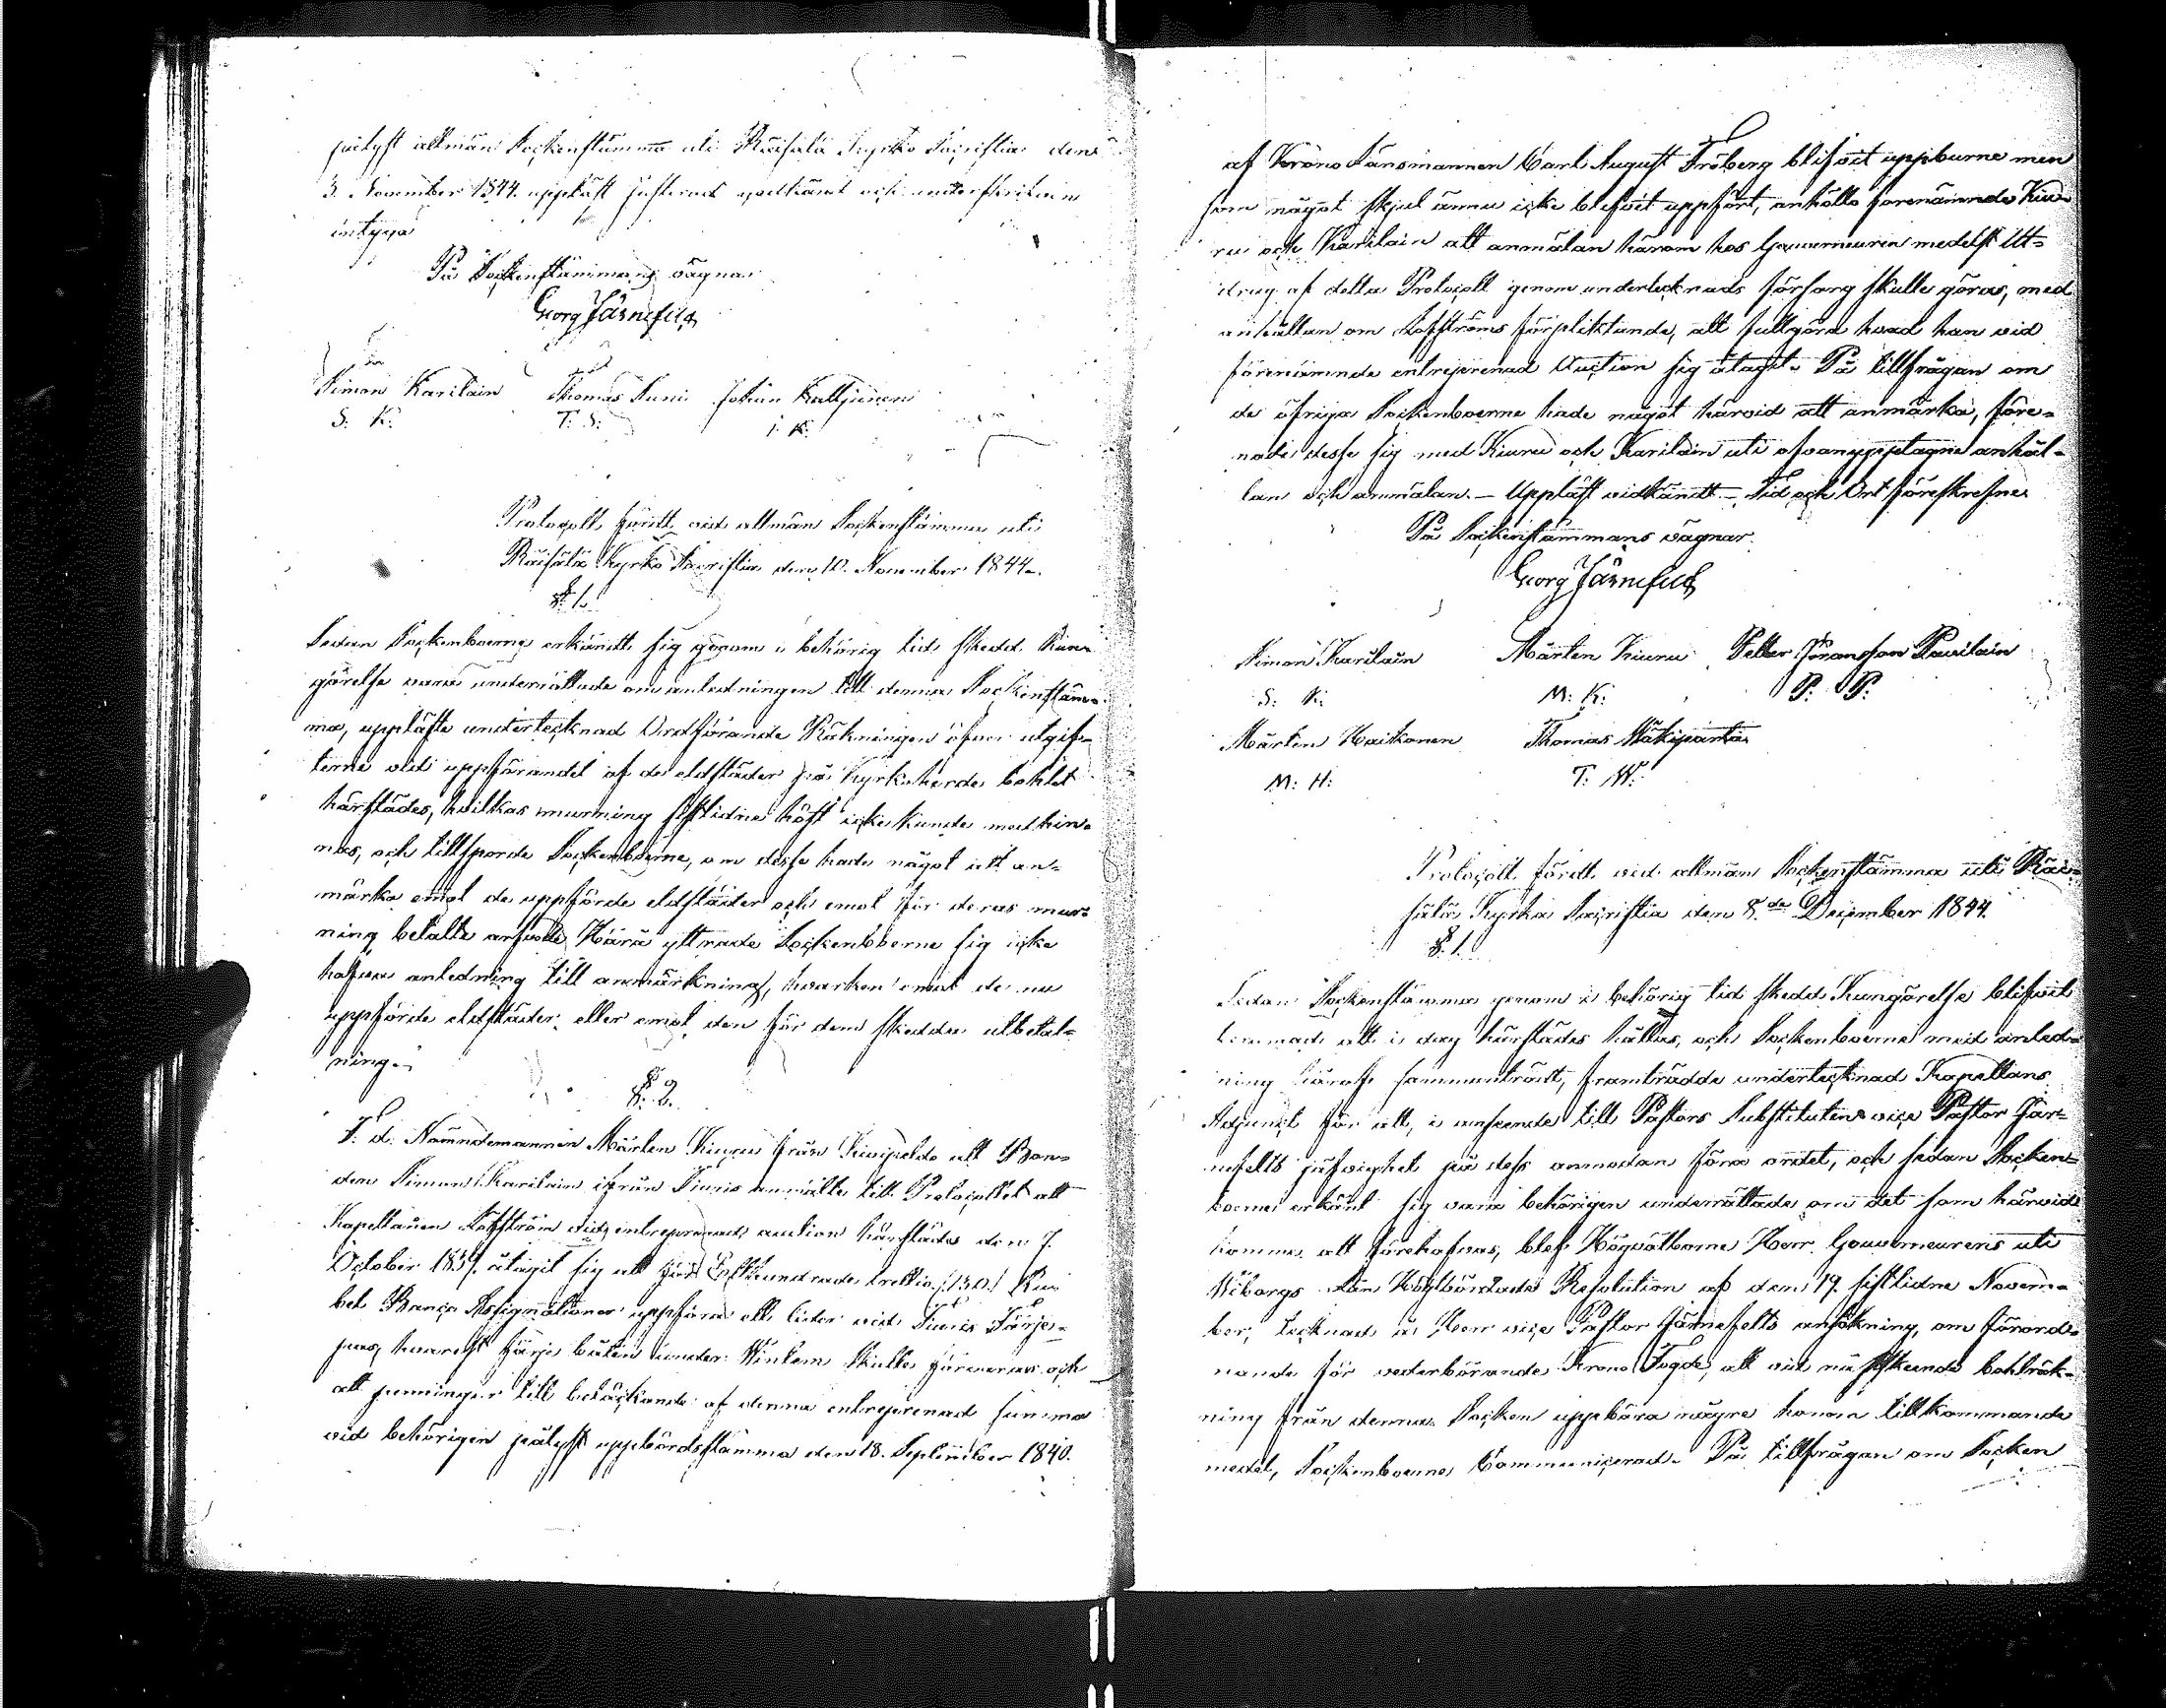 pålyst allmän Sockenstämma uti Räisälä Kyrko Sacristia den
3. November 1844. uppläst justerat godkändt och underskrifven
intyga
På Sockenstämmans vägnar
Georg Järnefelt
Simon Karilain Thomas Suni Johan Kalljunen
S. K. T. S. J. K.
Protocoll fördt vid allmän Sockenstämma uti
Räisälä Kyrko Sacristia den 10. November 1844.
§. 1.
Sedan Sockenboerne erkändt sig genom i behörig tid skedd Kun-
görelse vara underrättade om anledningen till denna Sockenstäm-
ma, uppläste undertecknad Ordförande Räkningen öfver utgif-
terne vid uppförandet af de eldstäder på Kyrkoherde bohlet
härstädes, hvilkas murning sistlidne höst icke kunde medhin-
nas, och tillsporde Sockenboerne, om desse hade något att an-
märka emot de uppförde eldstäder och emot för deras mur-
ning betalte arfvode. Härå yttrade Sockenboerne sig icke
hafva anledning till anmärkning, hvarken emot de nu
uppförde eldstäder eller emot den för dem skedda utbetal-
ning.
§. 2.
F. d. Nämndemannen Mårten Kiuru från Kivipelto att Bon-
den Simon Karilain ifrån Tiuris anmälte till Protocollet att
Kapellanen Löfström vid entreprenad auction härstädes den 7.
October 18 åtagit sig att för Etthundrade trettio (130) Ru-
bel Banco Assignationer uppföra ett lider vid Tiuris Färje-
pass hvarest färje båten under Wintern skulle förvaras och
att penningar till betäckande af denna entreprenad summa
vid behörigen pålyst uppbördsstämma den 18. September 1840.
af Krono Länsmannen Carl August Fröberg blifvit uppburne men
som något skjul ännu icke blifvit uppfört, anhöllo förenämnde Kiu-
ru och Karilain att anmälan härom hos Gouverneuren medelst Ut-
drag af detta Protocoll genom undertecknads försorg skulle göras, med
anhållan om Löfströms förpliktande, att fullgöra hvad han vid
förenämnde entreprenad Auction sig åtagit. På tillfrågan om
de öfriga Sockenboerne hade något härvid att anmärka, före-
nade desse sig med Kiuru och Karilain uti ofvanupptagne anhål-
lan och anmälan. – Uppläst vidkändt – Tid och Ort föreskrefne
På Sockenstämmans vägnar.
Georg Järnefelt
Simon Karilain Mårten Kiuru Petter Göransson Pavilain
S. K. M. K. P. P.
Mårten Haikonen Thomas Mäkipärtä
M. H. T. M.
Protocoll fördt vid allmän Sockenstämma uti Räi-
sälä Kyrko Sacristia den 8.de December 1844.
§. 1.
Sedan Sockenstämma genom i behörig tid skedd Kungörelse blifvit
bestämd att i dag härstädes hållas, och Sockenboerne med anled-
ning häraf sammanträdt, framträdde undertecknad Kapellans
Adjunct för att, i anseende till Pastors Substituten vice Pastor Jär-
nefelts jäfvighet på dess anmodan föra ordet, och sedan Socken-
boerne erkänt sig vara behörigen underrättade om det som härvid
komme att förehafvas, blef Högvälborne Herr Gouverneurens uti
Wiborgs Län Höglofvärde Resolution af den 19. sistlidne Novem-
ber, tecknad å Herr vice Pastor Järnefelts ansökning, om förord-
nande för vederbörande Krono Fogde, att vid nu påstående bohlräk-
ning från denna Socken uppbära någre honom tillkommande
medel, Sockenboerne Communicerad. På tillfrågan om Socken